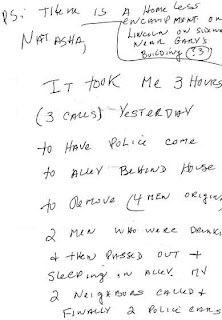 PS: THERE IS A HOMELESS
ENCAMPMENT ON
LINCOLN ON
NEAR GARY'S
BUILDING (?3)
NATASHA,
IT TOOK ME 3 HOURS
(3 CALLS) YESTERDAY
to HAVE POLICE COME
to ALLEY BEHIND HOUSE
to REMOVE (4 MEN ORIGIN
2 MEN WHO WERE DRINKI
& THEN PASSED OUT &
SLEEPING IN ALLEY. MY
2 NEIGHBORS CALLED &
FINALLY 2 POLICE CARS